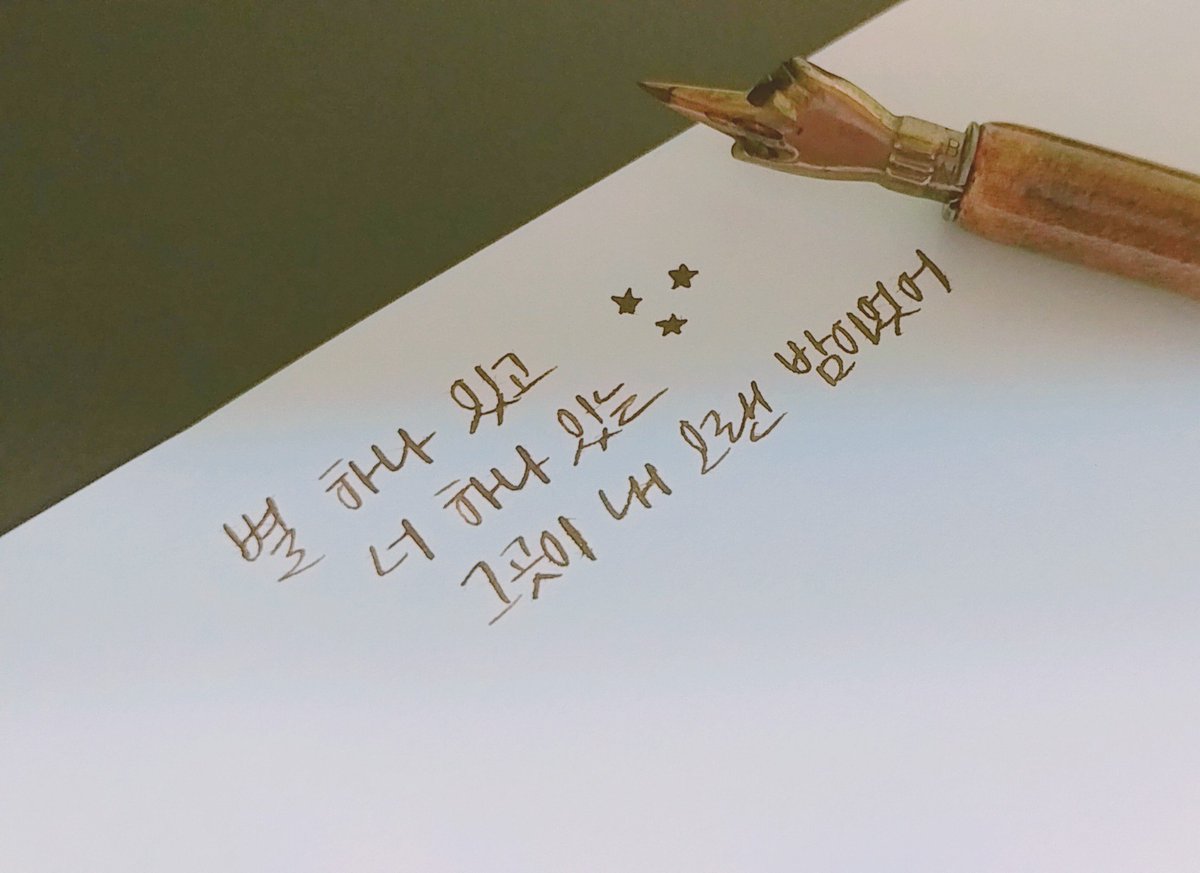 별 하나 있고
너 하나 있는
그곳이 내 오랜 밤이었어